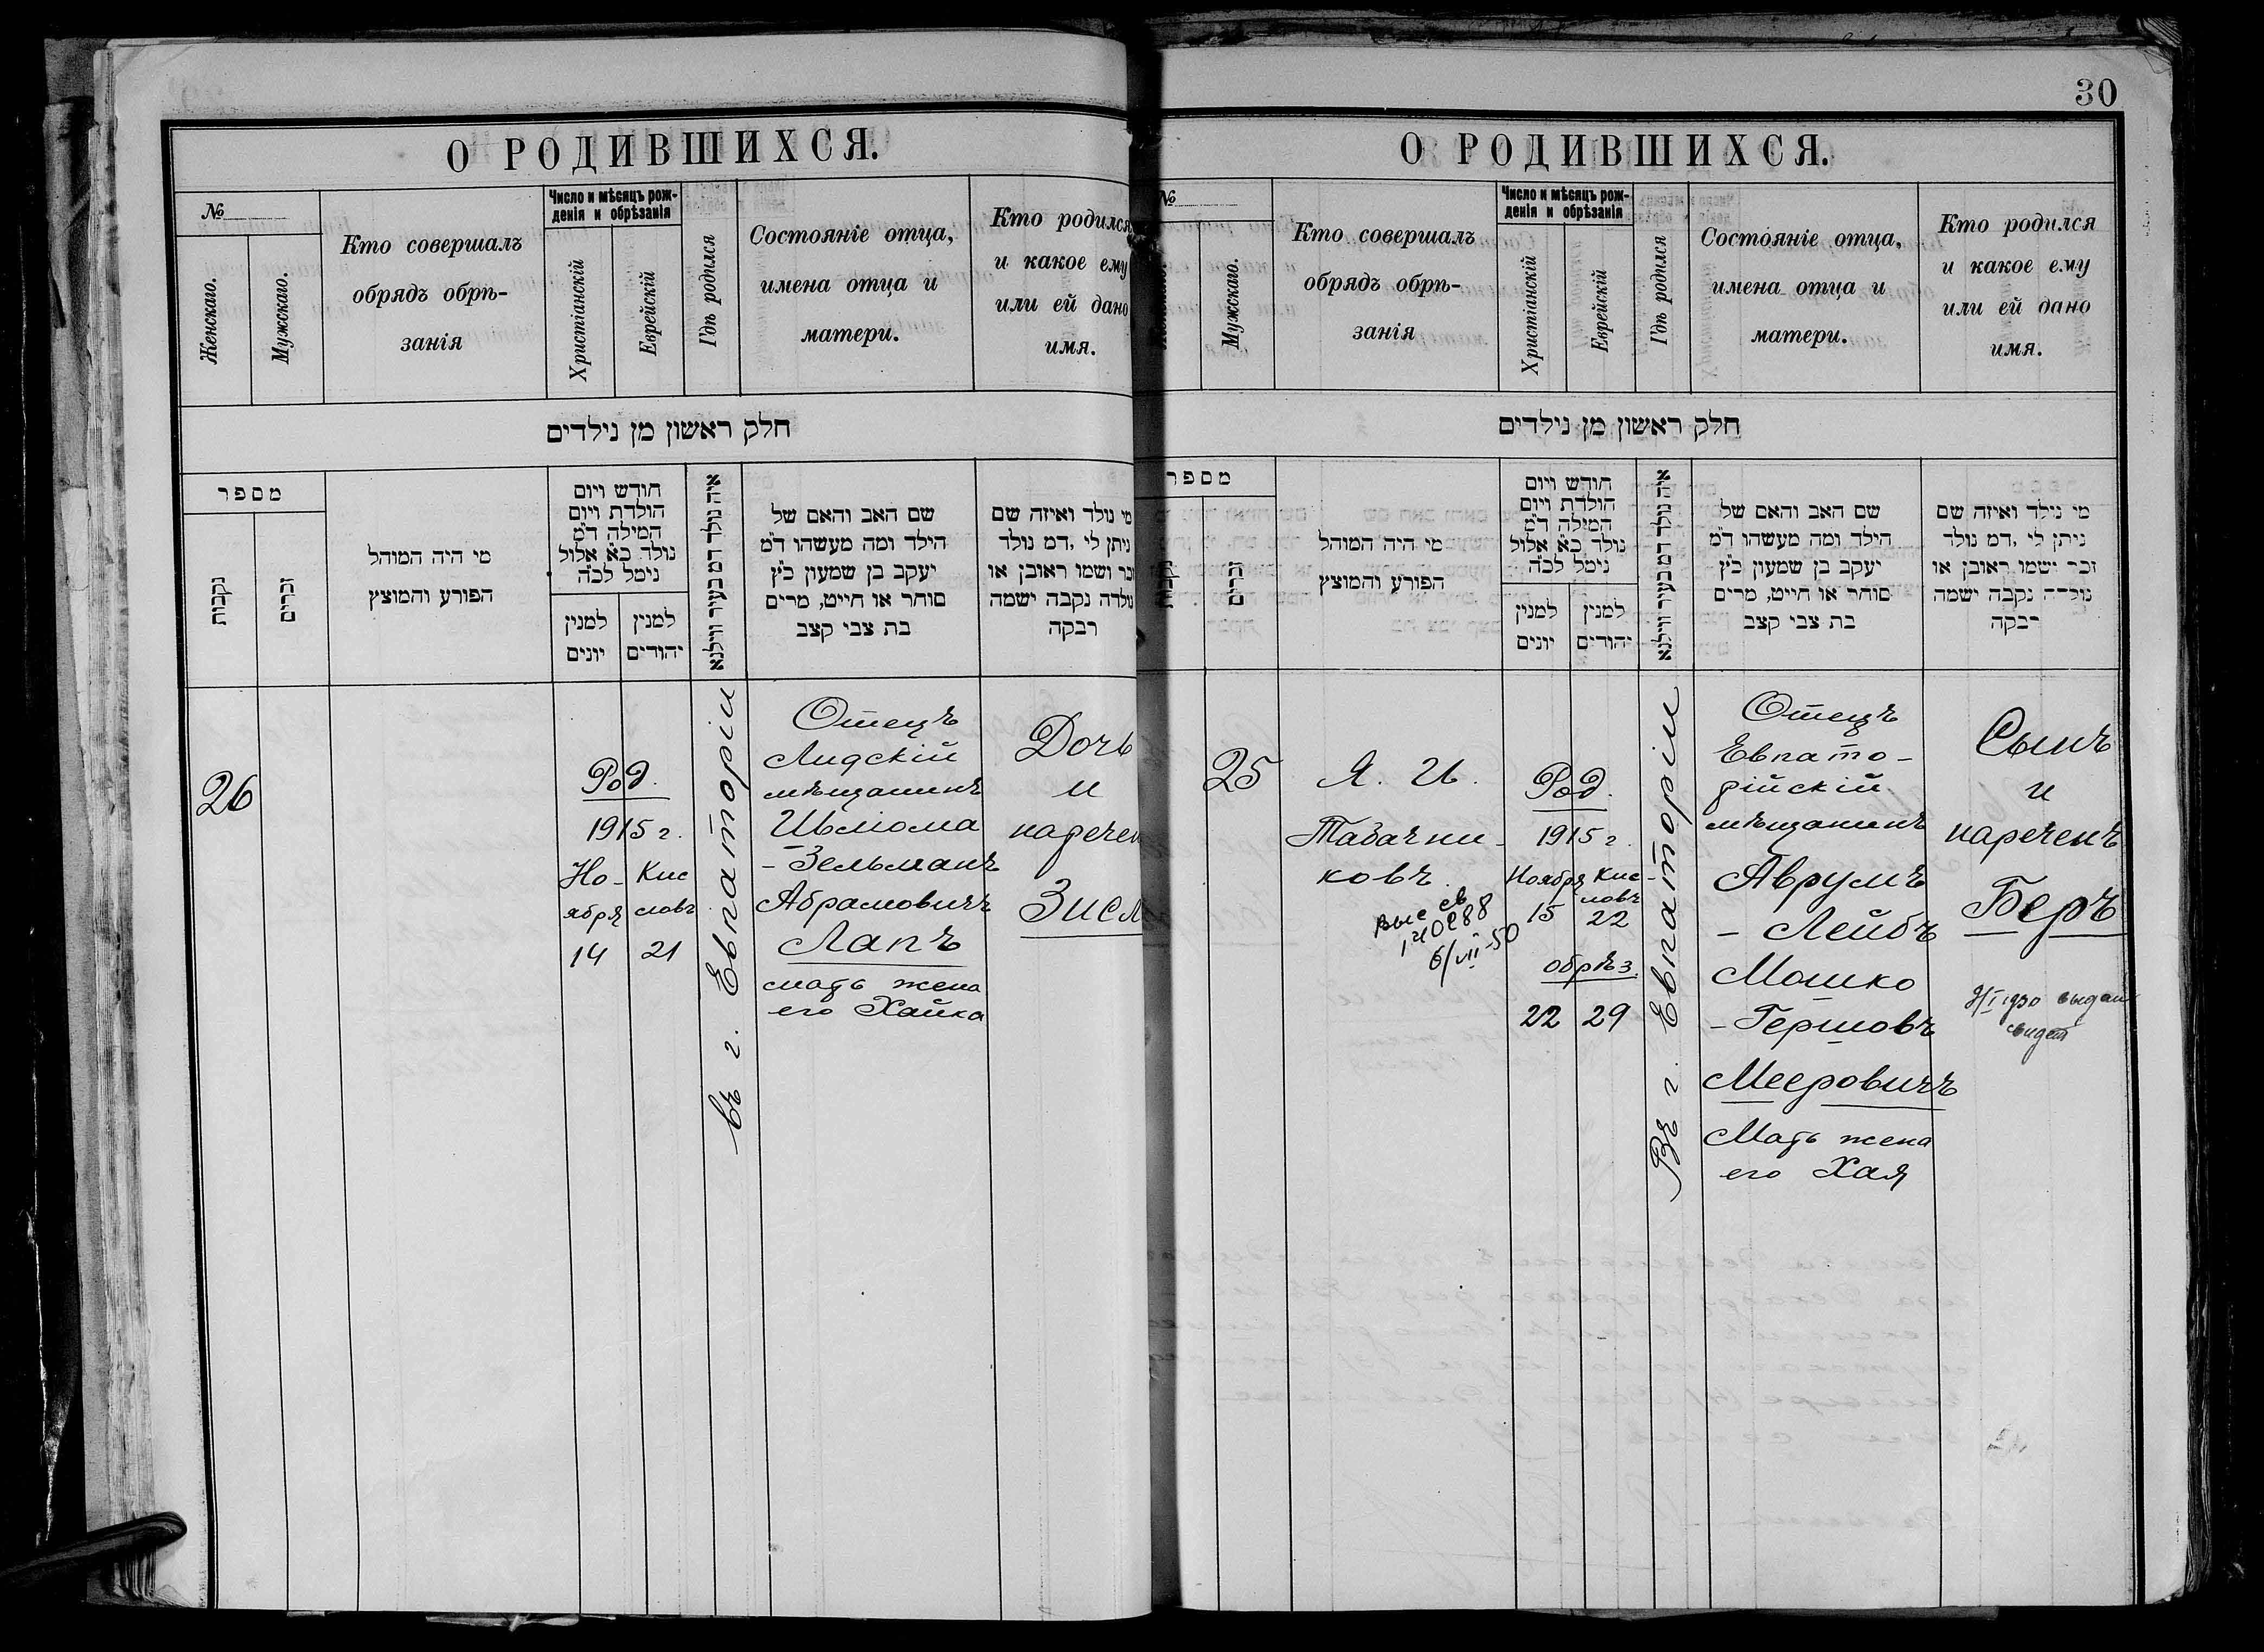 О РОДИВШИХСЯ.
№
Женскаго.
Мужскаго.
Кто совершалъ
обрядъ обрѣ-
занія
Число и мѣсяцъ рож-
денія и обрѣзанія
Христіанскій
Еврейскій
Гдѣ родился
Состояніе отца,
имена отца и
матери.
Кто родился
и какое ему
или ей дано
имя.
חלק ראשון מן נילדים
מספר
נקבות
זכרים
מי היה המוהל
הפורע והמוצץ
חודש ויום
הולדת ויום
המילה ד״מ
נולד כ״א אלול
נימל לכ״ה
למנין
יונים
למנין
יהודים
איה נולד דמ בעיר ווילנא
שם האב והאם של
הילד ומה מעשהו ד״מ
יעקב בן שמעון כ״ץ
סוחר או חייט, מרים
בת צבי קצב
מי נולד ואיזה שם
ניתן לי ,דמ נולד
זכר ושמו ראובן או
נולדה נקבה ישמה
רבקה
26
Род.
1915 г.
Но-
ября
14
Кис
ловъ
21
въ г. Евпаторіи
Отецъ
Лидскій
мѣщанинъ
Шліома
-Зельманъ
Абрамовичъ
Лапъ
мать жена
его Хайка
Дочь
и
наречен
Зисл
30
О РОДИВШИХСЯ.
№
Мужскаго.
Кто совершалъ
обрядъ обрѣ-
занія
Число и мѣсяцъ рож-
денія и обрѣзанія
Христіанскій
Еврейскій
Гдѣ родился
Состояніе отца,
имена отца и
матери.
Кто родился
и какое ему
или ей дано
имя.
חלק ראשון מן נילדים
מספר
נקבות
זכרים
מי היה המוהל
הפורע והמוצץ
חודש ויום
הולדת ויום
המילה ד״מ
נולד כ״א אלול
נימל לכ״ה
למנין
יונים
למנין
יהודים
איה נולד דמ בעיר ווילנא
שם האב והאם של
הילד ומה מעשהו ד״מ
יעקב בן שמעון כ״ץ
סוחר או חייט, מרים
בת צבי קצב
מי נילד ואיזה שם
ניתן לי ,דמ נולד
זכר ישמו ראובן או
נולדה נקבה ישמה
רבקה
25
Я. И.
Табачни-
ковъ.
6/VII-50
Род.
1915 г.
Ноября
15
Кис-
ловъ
22
обрѣз.
22 29
Въ г. Евпаторіи
Отецъ
Евпато-
рійскій
мѣщанинъ
Аврумъ
- Лейбъ
Мошко
-Гершовъ
Мееровичъ
Мать жена
его Хая
Сынъ
и
нареченъ
Беръ